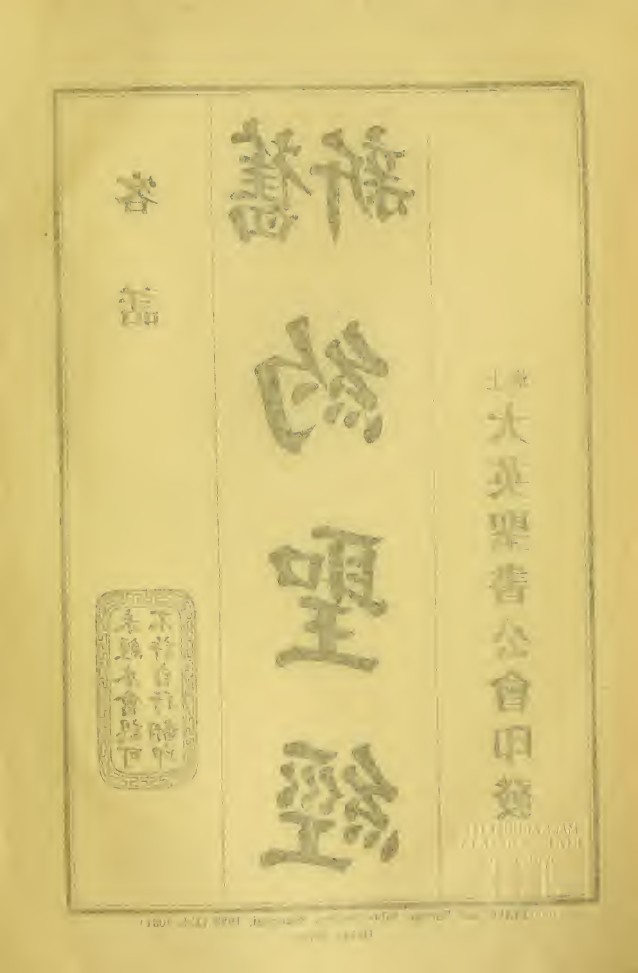 客話
未經本會認可
不許自行翻印
舊新
約聖經
上海
大英聖書公會印發